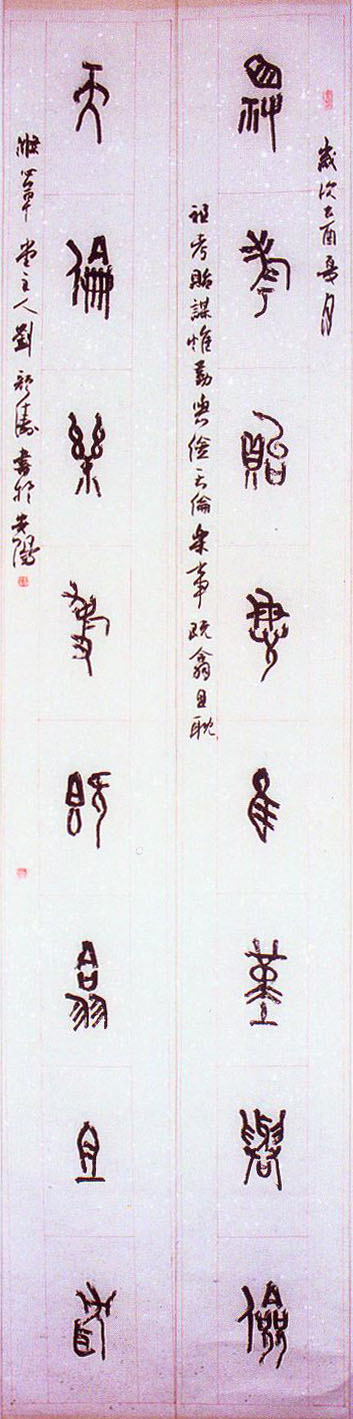 歲次乙酉夏月
祖考貽謀惟勤與儉
祖考貽謀惟勤與儉天倫樂事既翕且耽
天倫樂事既翕且耽
草堂主人劉 書於安陽